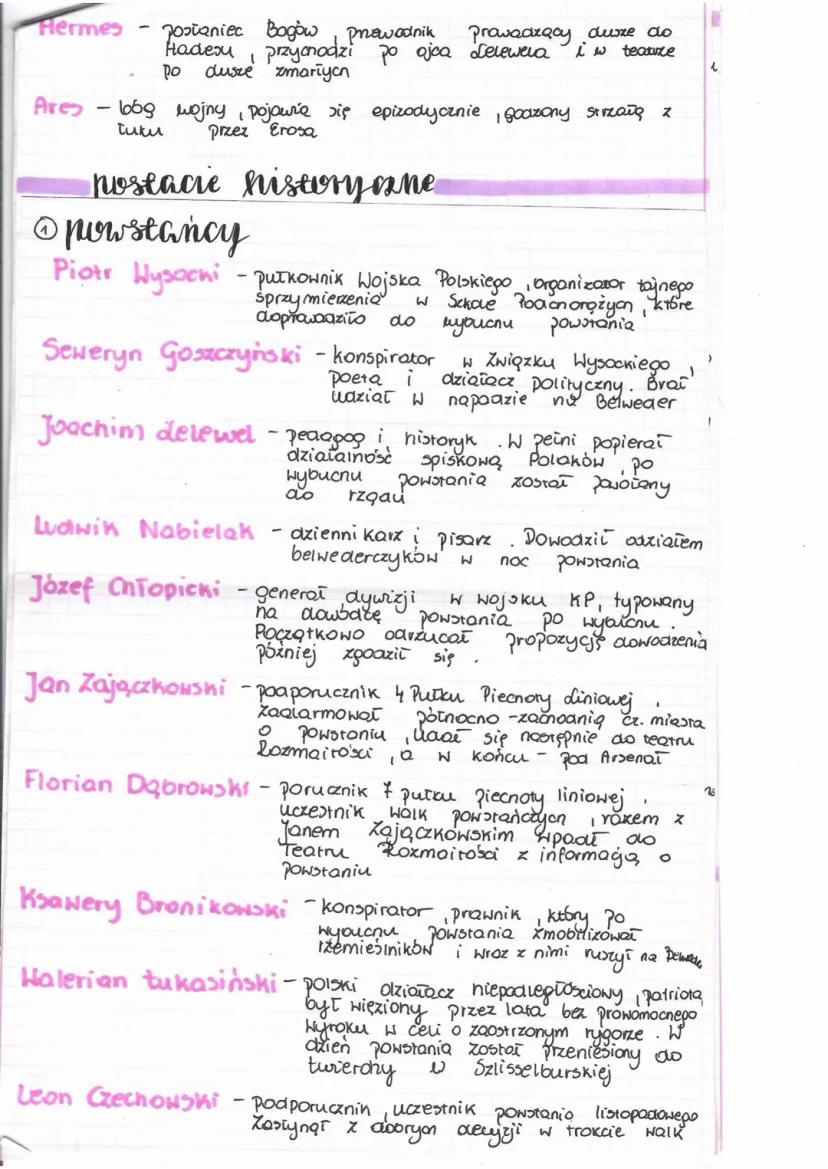 Hermes - posłaniec Bogów, przewodnik prowadzący dusze do
Hadesu, przychodzi po ojca Lelewela i w teatrze
po dusze zmarłych
Ares - bóg wojny, pojawia się epizodycznie, godzony strzałą z
łuku przez Erosa
postacie historyczne
① powstańcy
Piotr Wysocki - pułkownik Wojska Polskiego, organizator tajnego
sprzymierzenia w Szkole Podchorążych, które
doprowadziło do wybuchu powstania
Seweryn Goszczyński - konspirator w Związku Wysockiego,
poeta i działacz polityczny. Brał
udział w napadzie na Belweder
Joachim Lelewel - pedagog i historyk. W pełni popierał
działalność spiskową Polaków, po
wybuchu powstania został powołany
do rządu
Ludwik Nabielak - dziennikarz i pisarz. Dowodził oddziałem
belwederczyków w noc powstania
Józef Chłopicki - generał dywizji w wojsku KP, typowany
na dowódcę powstania po wybuchu.
Początkowo odrzucał propozycję dowodzenia
później zgodził się.
Jan Zajączkowski - podporucznik 4 Pułku Piechoty Liniowej,
zaalarmował północno-zachodnią cz. miasta
o powstaniu, udał się następnie do teatru
Rozmaitości, a w końcu - pod Arsenał
Florian Dąbrowski - porucznik 7 pułku piechoty liniowej,
uczestnik walk powstańczych, razem z
Janem Zajączkowskim wpadł do
Teatru Rozmaitości z informacją o
powstaniu
Ksawery Bronikowski - konspirator, prawnik, który po
wybuchu powstania zmobilizował
rzemieślników i wraz z nimi ruszył na Belweder
Walerian Łukasiński - polski działacz niepodległościowy, patriota,
był więziony przez lata bez prawomocnego
wyroku w celi o zaostrzonym rygorze. W
dzień powstania został przeniesiony do
twierdzy w Szlisselburskiej
Leon Czechowski - podporucznik, uczestnik powstania listopadowego
Zasłynął z dobrych decyzji w trakcie walk